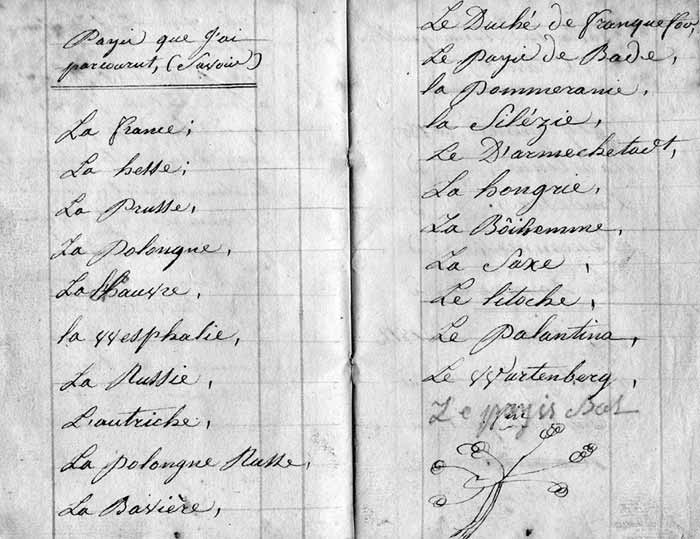 Payis que J'ai
parcourut, (Savoir)
La france;
La hesse;
La Prusse,
La Polongne,
La hauvre,
la Wesphalie,
La Russie,
L'autriche,
La polongne Russe,
La Bavière,
Le Duché de franquefou,
Le Payis de Bade,
la Pommeranie,
la Silézie,
Le D'armechetadt,
La hongrie,
La Bôihemme,
La Saxe,
Le litoche,
Le Palantina,
Le Wurtenberg,
Le payis Bas